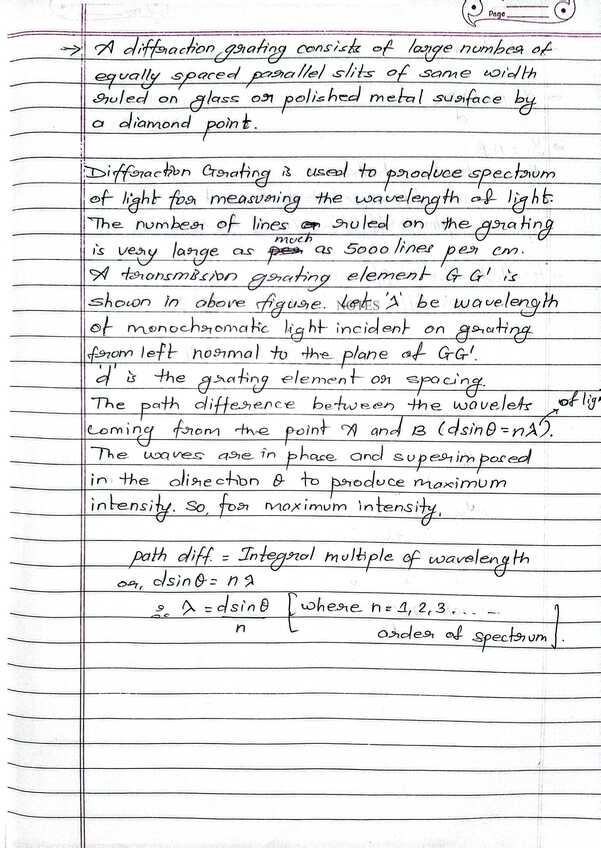 Page
→ A diffraction grating consists of large number of
equally spaced parallel slits of same width
ruled on glass or polished metal surface by
a diamond point.
Diffraction Grating is used to produce spectrum
of light for measuring the wavelength of light.
The number of lines or ruled on the grating
is very large as per much as 5000 lines per cm.
A transmission grating element G G' is
shown in above figure. Let 'λ' be wavelength
of monochromatic light incident on grating
from left normal to the plane of GG'.
'd' is the grating element or spacing.
The path difference between the wavelets of lig
coming from the point A and B (dsinθ=nλ).
The waves are in phase and superimposed
in the direction θ to produce maximum
intensity. So, for maximum intensity,
path diff. = Integral multiple of wavelength
or, dsinθ = nλ
∴ λ = dsinθ/n [where n = 1, 2, 3 . . . . –
order of spectrum].